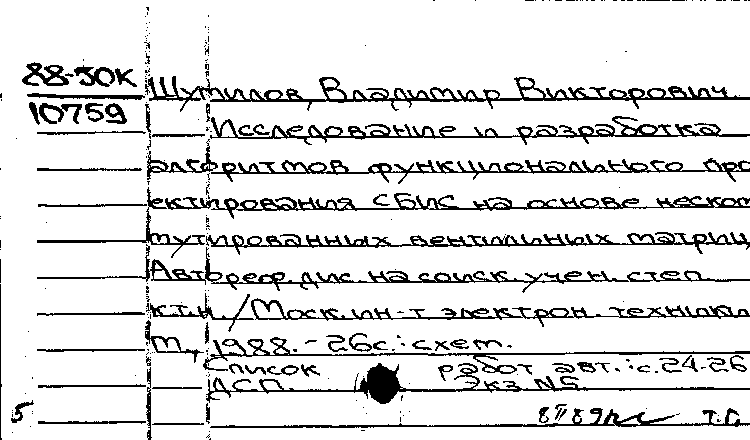 88-JOK Шумилов, Владимир Викторович.
10759 Исследование и разработка
алгоритмов функционального про
ектирования СБИС на основе неском
мутированных вентильных матриц
Автореф. дис. на соиск. учен. степ.
к.т.н. /Моск. ин-т электрон. техники
М., 1988. - 26с.: схем.
Список работ авт.: с.24-26
ДСП. Экз N5.
5 т.г.